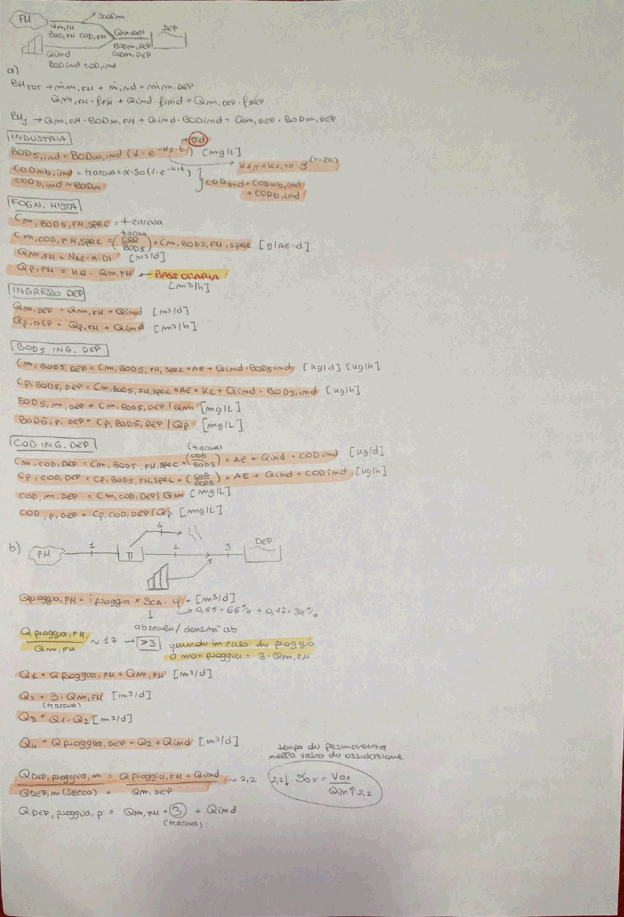 FM
Qm,FM
BOD,FM COD,FM
Qm,DEP
BODm,DEP
CODm,DEP
DEP
Qind
BODind CODind
a)
BHTOT → ṁm,FM + ṁ,ind = ṁm,DEP
Qm,FM · ρFM + Qind · ρind = Qm,DEP · ρDEP
→ Qm,FM · BODm,FM + Qind · BODind = Qm,DEP · BODm,DEP
INDUSTRIA
BOD5,ind = BOD∞,ind (1 - e^-K1·t) [mg/L]
5d
CODb,ind ~ BOD∞
CODind = CODmb,ind + CODb,ind
FOGN. MISTA
Cm,BOD5,FM,spec = traccia
Cm,COD,FM,spec = (COD/BOD5) × Cm,BOD5,FM,spec [g/AE·d]
traccia
Qm,FM = NAE · α · DI [m³/d]
Qp,FM = KQ · Qm,FM ← BASE ORARIA
[m³/h]
INGRESSO DEP
Qm,DEP = Qm,FM + Qind [m³/d]
Qp,DEP = Qp,FM + Qind [m³/h]
BOD5 ING. DEP
Cm,BOD5,DEP = Cm,BOD5,FM,spec × AE + Qind · BOD5ind [kg/d] [kg/h]
Cp,BOD5,DEP = Cm,BOD5,FM,spec × AE × Kc + Qind · BOD5,ind [kg/h]
BOD5,m,DEP = Cm,BOD5,DEP / Qm [mg/L]
BOD5,p,DEP = Cp,BOD5,DEP / Qp [mg/L]
COD ING. DEP
(traccia)
Cm,COD,DEP = Cm,BOD5,FM,spec × (COD/BOD5) × AE + Qind × CODind [kg/d]
Cp,COD,DEP = Cp,BOD5,FM,spec × (COD/BOD5) × AE + Qind × CODind [kg/h]
COD,m,DEP = Cm,COD,DEP / Qm [mg/L]
COD,p,DEP = Cp,COD,DEP / Qp [mg/L]
b)
FM 1 2 3 4 DEP
Qpioggia,FM = i pioggia × SCA · φ = [m³/d]
→ 0,85 · 66% + 0,12 · 34%
abzcalo / densità ab
Qpioggia,FM / Qm,FM ~ 17 → >3
quindi in caso di pioggia
Q max pioggia = 3 · Qm,FM
Q1 = Qpioggia,FM + Qm,FM [m³/d]
Q2 = 3 · Qm,FM [m³/d]
(traccia)
Q3 = Q1 - Q2 [m³/d]
Q4 = Qpioggia,DEP = Q2 + Qind [m³/d]
tempo di permanenza
nella vasca di ossidazione
QDEP,pioggia,m / QDEP,m (secco) = Qpioggia,FM + Qind / Qm,DEP ~ 2,2
Qin↑ 2,2
QDEP,pioggia,p = Qm,FM · 3 + Qind
(traccia)